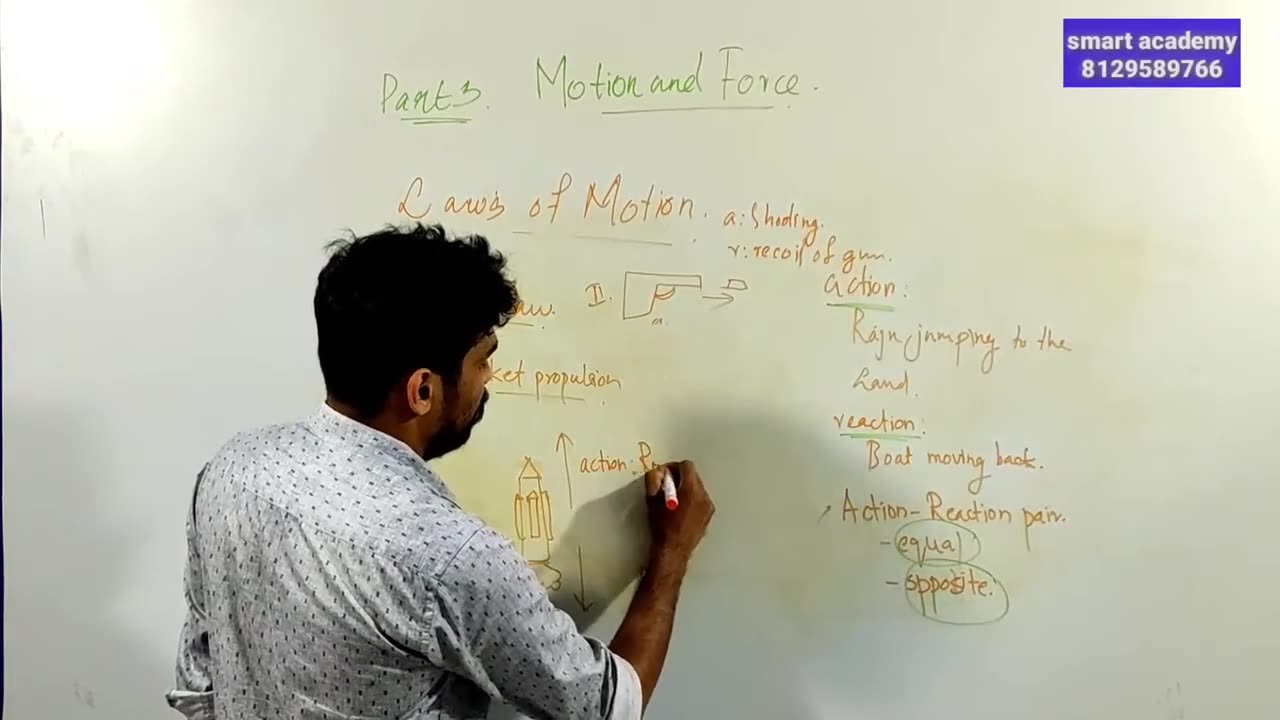 smart academy
8129589766
Part 3. Motion and Force.
Laws of Motion.
a: Shooting.
r: recoil of gun.
II.
action:
Raju jumping to the
land.
ket propulsion
reaction:
Boat moving back.
action:
Action-Reaction pair.
- equal
- opposite.